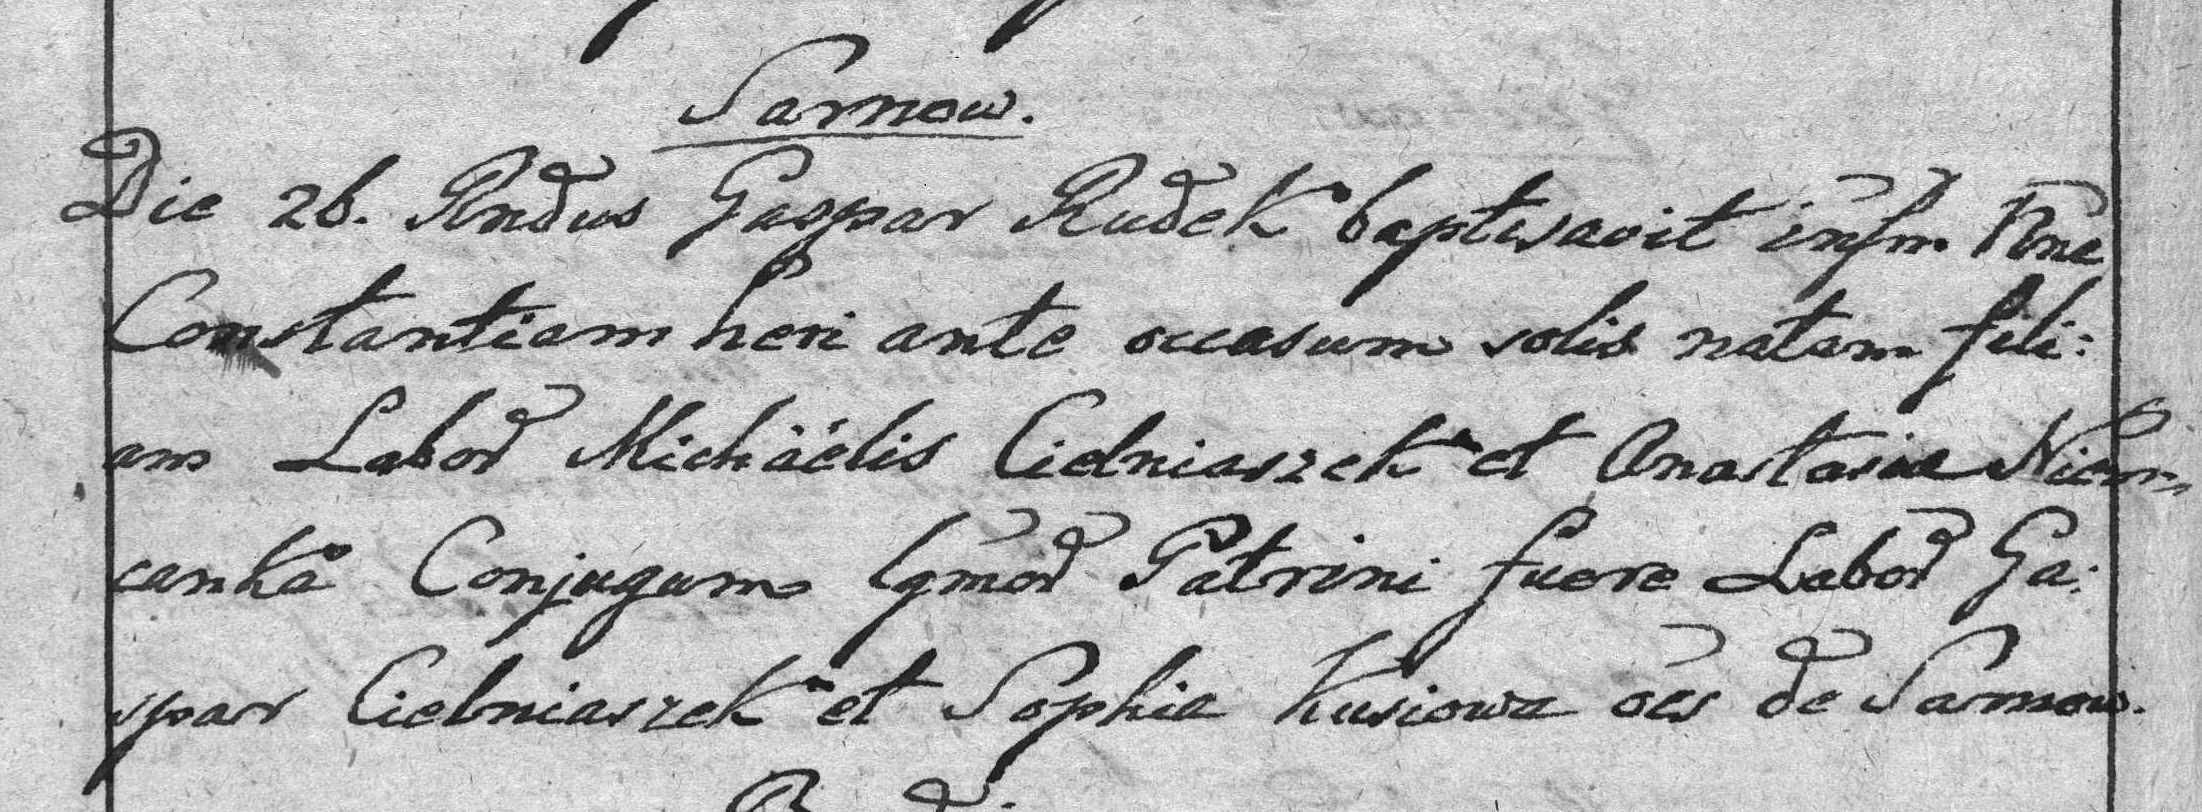 Sarnow.
Die 26. Rndus Gaspar Rudek baptisavit infm Nne
Constantiam heri ante occasum solis natam fili:
am Labor Michaëlis Cielniaszek et Anastasiae Niem
canka Conjugum lgmor Patrini fuere Labor Ga:
spar Cielniaszek et Sophia Kusiowa oes de Sarnow.